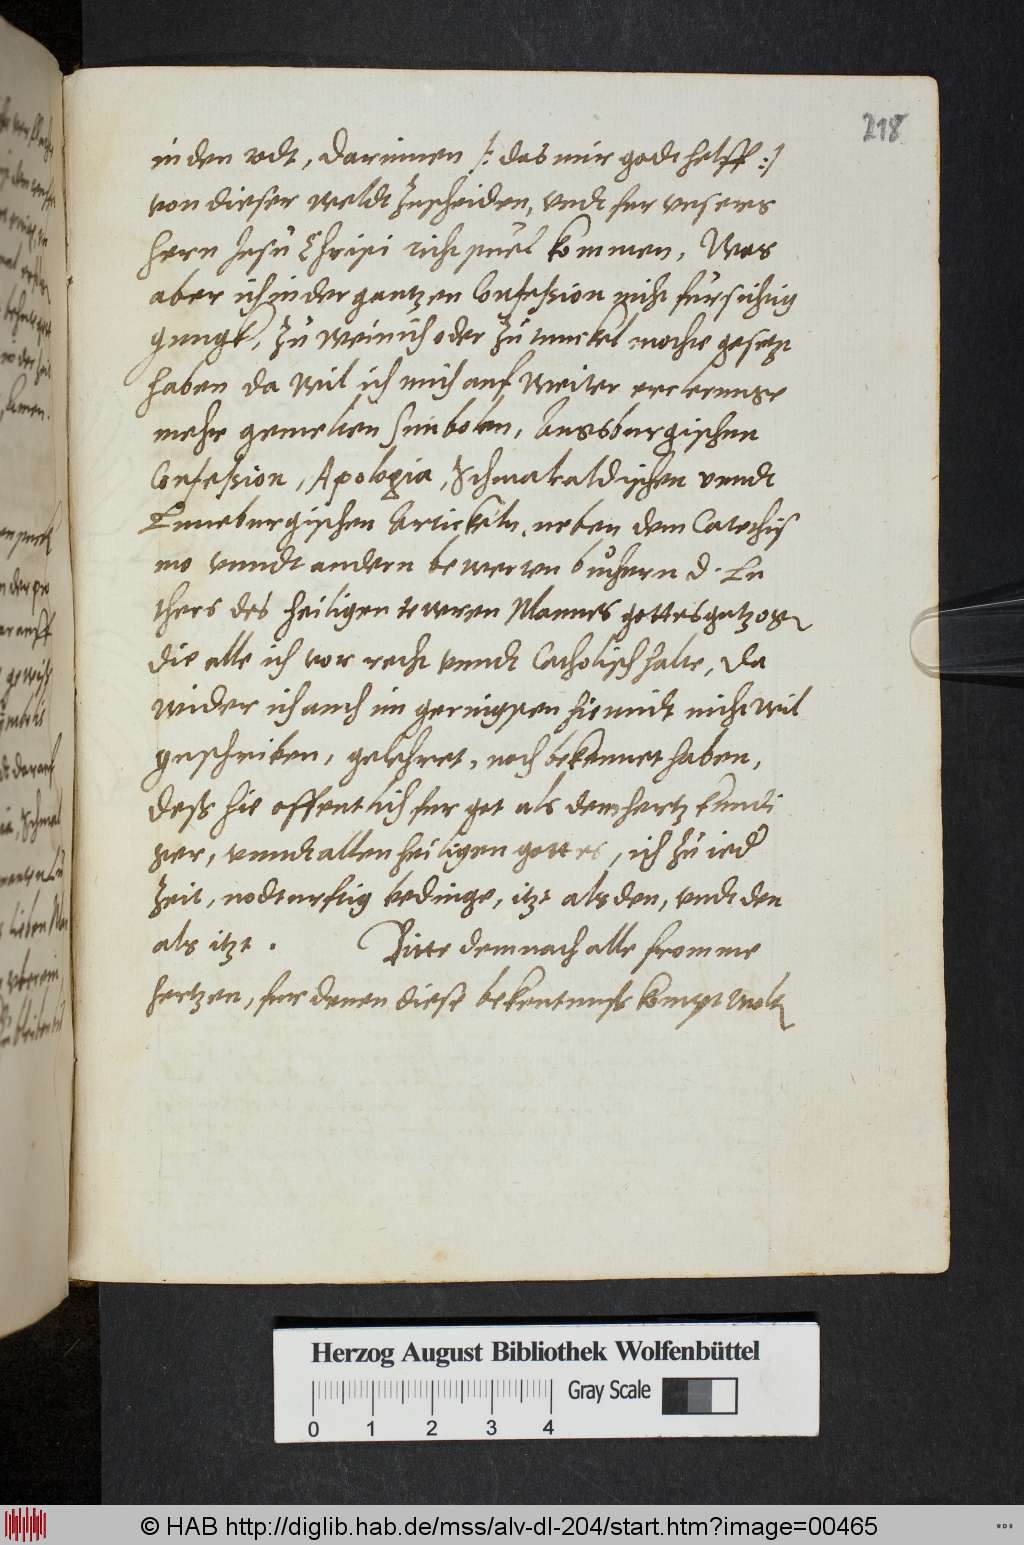 218
in den todt, darinnen /: das mir godt helff :/
von dieser weldt zuscheiden, vndt fur vnsers
hern Jesu Christi richtstuel kommen, Was
aber ich in der gantzen Confession nicht fursichtig
gnugk, zu weinich oder zu tunckel mochte gesetzt
haben da wil ich mich auf weiter ercterunge
mehr gemelten Simbolen, Ausburgischen
Confession, Apologia, Schmalcaldischen vnndt
Luneburgischen Artickeln, neben dem Catechis
mo vnndt andern bewerten buchern d. Lu
thers des heiligen tewren Mannes gottes getzogen
die alle ich vor recht vnndt Catholisch halte, da
wider ich auch im geringsten hiemidt nicht wil
geschriben, gelehret, noch bekennet haben,
deß hie offentlich fur got als dem hertz kundi
ger, vnndt allen heiligen gottes, ich zu ieder
Zeit, nodturftig bedinge, itzt als den, vndt den
als itzt. Bitte demnach alle fromme
hertzen, fur denen diese bekentnuß kompt wolen
Herzog August Bibliothek Wolfenbüttel
Gray Scale
0 1 2 3 4
© HAB http://diglib.hab.de/mss/alv-dl-204/start.htm?image=00465